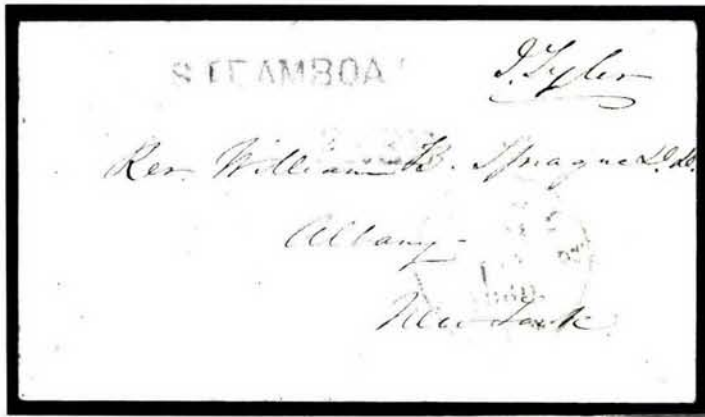 STEAMBOAT
J. Tyler
Rev. William B. Sprague D.D.
Albany
New York